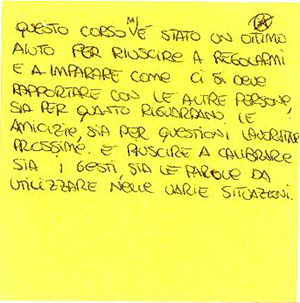 QUESTO CORSO M'È STATO UN OTTIMO
AIUTO PER RIUSCIRE A REGOLARMI
E A IMPARARE COME CI SI DEVE
RAPPORTARE CON LE ALTRE PERSONE,
SIA PER QUANTO RIGUARDANO LE
AMICIZIE, SIA PER QUESTIONI LAVORATIVE
PROSSIME. E RIUSCIRE A CALIBRARE
SIA I GESTI, SIA LE PAROLE DA
UTILIZZARE NELLE VARIE SITUAZIONI.